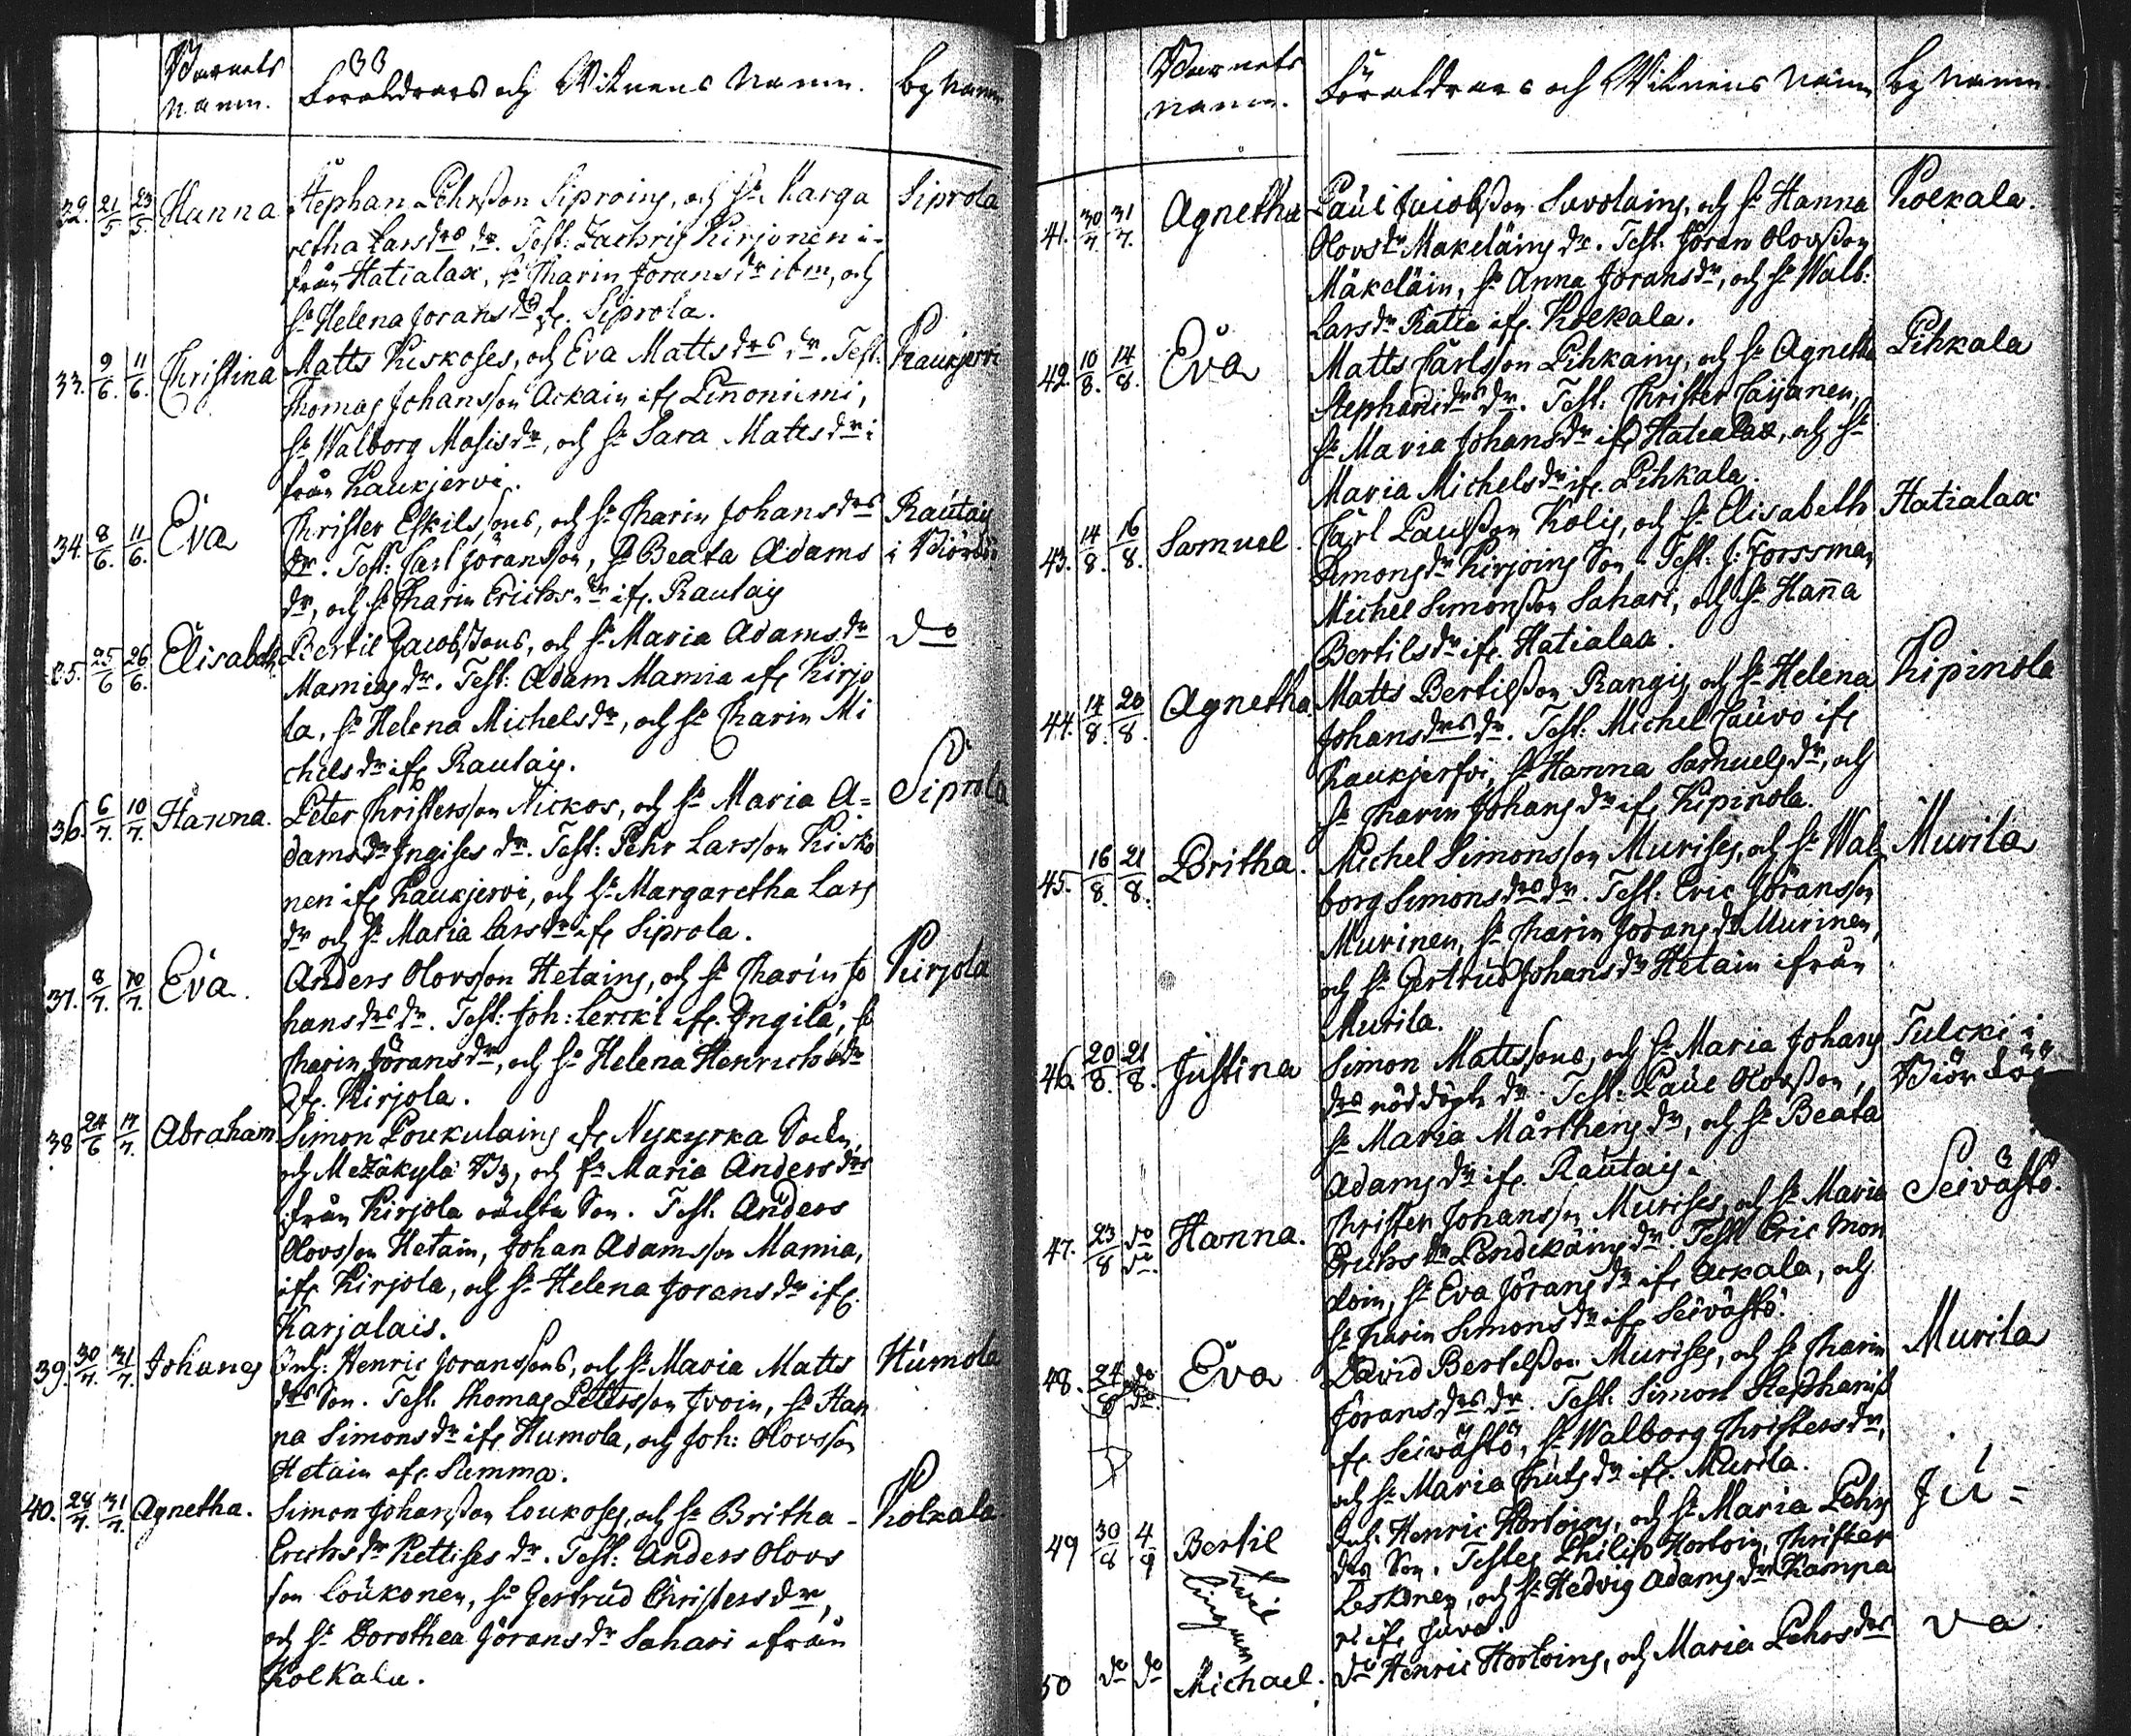 Barnets
namn.
Föräldrars och Witnens Namn.
by Namn
32. 21/5 23/5 Hanna Stephan Pehrsson Siproins, och h: Marga Siprola
retha Larsdrs dr. Test: Zachris Kirjonen i-
från Hatialax, h: Charin Joransdr ibm, och
h: Helena Joransdr ifr. Siprola.
33. 9/6. 11/6. Christina Matts Kiskoses, och Eva Mattsdrs dr. Test. Kaukjervi
Thomas Johansson Ackain ifr Linonicmi,
h: Walborg Mosisdr, och h: Sara Mattsdr i
från Kaukjervi.
34. 8/6. 11/6. Eva Christer Eskilssons, och h: Charin Johansdrs Rautais
dr. Test: Carl Joransson, h: Beata Adams i Biörkö
dr, och h: Charin Erichsdr ifr. Rautais
35. 25/6 26/6. Elisabeth Bertil Jacobssons, och h: Maria Adamsdr do
Mamias dr. Test: Adam Mamia ifr Kirjo
la, h: Helena Michelsdr, och h: Charin Mi
chelsdr ifr Rautais.
36. 6/7. 10/7. Hanna. Peter Christersson Nickos, och h: Maria A= Siprola
damsdr Ingises dr. Test: Pehr Larsson Kisko
nen ifr Kaukjervi, och h: Margaretha Lars
dr och h: Maria Larsdr ifr Siprola.
37. 8/7. 10/7. Eva. Anders Olovsson Hetains, och h: Charin Jo Kirjola
hansdrs dr. Test: Joh: Lercki ifr. Ingila, h:
Charin Joransdr, och h: Helena Henrichsdr
ifr. Kirjola.
38 24/6 17/7. Abraham Simon Poukulains ifr Nykyrka Sockn,
och Mezäkylä By, och h: Maria Andersdrs
ifrån Kirjola oächta Son. Test. Anders
Olovsson Hetain, Johan Adamsson Mamia,
ifr Kirjola, och h: Helena Joransdr ifr.
Karjalais.
39. 30/7. 31/7. Johanes Inh: Henric Joranssons, och h: Maria Matts Humola
drs Son. Test. Thomas Petersson Ivoin, h: Han
na Simonsdr ifr Humola, och Joh: Olovsson
Hetain ifr Summa.
40. 28/7. 31/7. Agnetha. Simon Johansson Loukoses, och h: Britha - Kolkala
Erichsdr Kettises dr. Test: Anders Olovs
son Loukonen, h: Gertrud Christersdr,
och h: Dorothea Joransdr Sahari ifrån
Kolkala.
Barnets
namn.
Föräldrars och Witnens Namn
by Namn.
41. 30/7. 31/7. Agnetha Paul Jacobsson Savolains, och h: Hanna Kolkala.
Olovsdr Makeläins dr. Test. Joran Olovsson
Mäkeläin, h: Anna Joransdr, och h: Walb:
Larsdr Ratia ifr. Kolkala.
42. 10/8. 14/8. Eva Matts Carlsson Pihkains, och h: Agnetha Pihkala
Stephansdrs dr. Test: Christer Caijanen,
h: Maria Johansdr ifr Hatialax, och h:
Maria Michelsdr ifr. Pihkala.
43. 14/8. 16/8. Samuel. Carl Paulsson Kolis, och h: Elisabeth Hatialax
Simonsdr Kirjoins Son. Test. J: Forssman
Michel Simonsson Sahari, och h: Hanna
Bertilsdr ifr. Hatialax.
44. 14/8. 20/8. Agnetha. Matts Bertilsson Rangis och h: Helena Kipinola
Johansdrs dr. Test: Michel Cauvo ifr
Kaukjerfvi, h: Hanna Samuelsdr, och
h: Charin Johansdr ifr Kipinola.
45. 16/8. 21/8. Britha. Michel Simonsson Murises, och h: Wal Murila
borg Simonsdrs dr. Test: Eric Joransson
Murinen, h: Charin Joransdr Murinen,
och h: Gertrud Johansdr Hetain ifrån
Murila.
46. 20/8. 21/8. Justina Simon Mattssons, och h: Maria Johans Tulcki i
drs nöddöpte dr. Test: Paul Olovsson, Biörkö
h: Maria Mårthensdr, och h: Beata
Adamsdr ifr. Rautais.
47. 23/8 do do. Hanna. Christer Johansson Murises, och h: Maria Seivästö.
Erichsdr Pendikäins dr. Test. Eric Mon
doin, h: Eva Joransdr ifr Ackala, och
h: Charin Simonsdr ifr Seivästö.
48. 24/8 do do. Eva David Bertelsson Murises, och h: Charin Murila
Joransdrs dr. Test. Simon Stephanss
ifr. Seiwästö, h: Walborg Christersdr,
och h: Maria Knutsdr ifr. Murila.
49 30/8 4/9 Bertil Inh: Henric Hortoins, och h: Maria Pehrs Ju=
drs Son. Testes Philip Hortoin, Christer
Leskonen, och h: Hedvig Adamsdr Kamppa
ri ifr Juva.
50 do do Michael. do Henric Hortoins, och Maria Pehrsdrs va